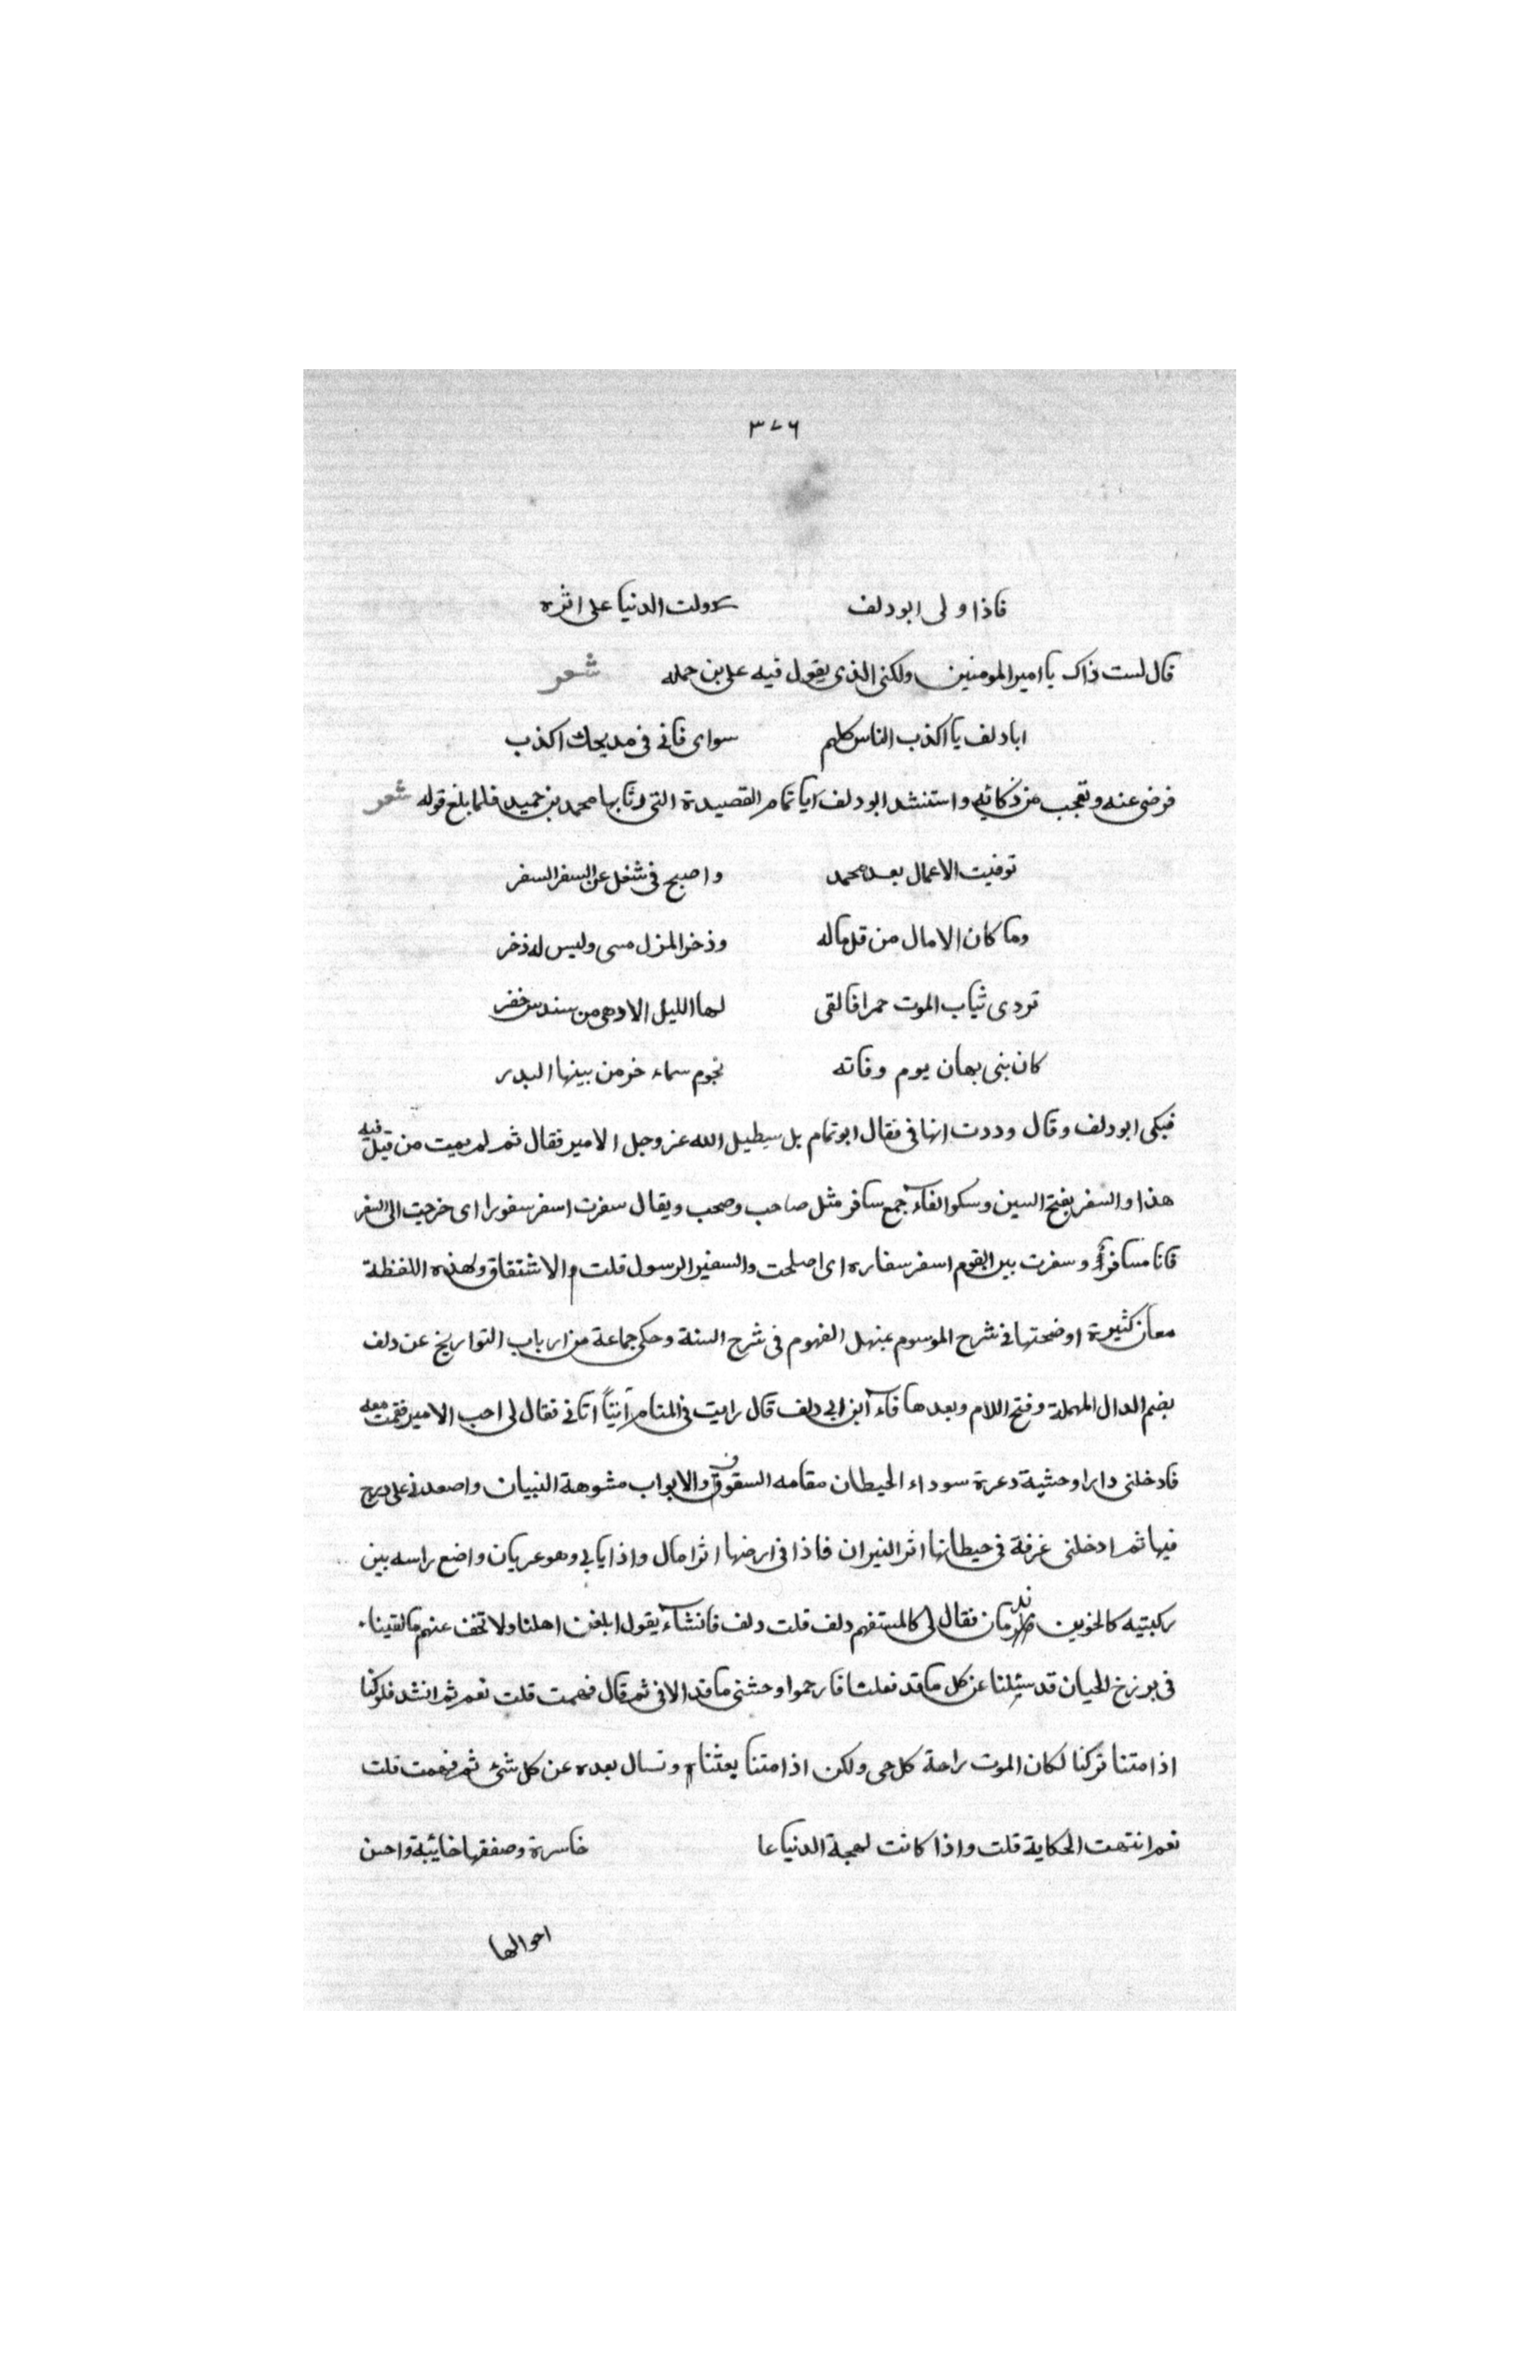 ٣٧٦
فاذا ولى ابودلف ولت الدنيا على اثره
قال لست ذاك يا امير المومنين ولكنى الذى يقول فيه على بن حمله شعر
ابا دلف يا اكذب الناس كلهم سواى فانى فى مديحك اكذب
فرضى عنه وتعجب من ذكائه واستنشد ابودلف ابا تمام القصيدة التى رثا بها محمد بن حميد فلما بلغ قوله شعر
توفيت الاعمال بعد محمد واصبح فى شغل عن السفر السفر
وما كان الامال من قل ماله وذخر المزل مسى وليس له ذخر
تردى ثياب الموت حمرا فالقى لها الليل الا وهى من سندس خضر
كان بنى بهان يوم وفاته نجوم سماء خر من بينها البدر
فبكى ابودلف وقال وددت انها فى فقال ابوتمام بل سيطيل الله عز وجل الامير فقال ثم لم يميت من قيل فيه
هذا والسفر بفتح السين وسكو الفاء جمع سافر مثل صاحب وصحب ويقال سفرت اسفر سفورا اى خرجت الى السفر
فانا مسافر وسفرت بين القوم اسفر سفاره اى اصلحت والسفير الرسول قلت والاشتقاق ولهذه اللفظة
معان كثيرة اوضحتها فى شرح الموسوم بمنهل الفهوم فى شرح السنة وحكى جماعة من ارباب التواريخ عن دلف
بضم الدال المهملة وفتح اللام وبعدها فاء ابن ابى دلف قال رايت فى المنام آتيًا اتانى فقال لى احب الامير فقمت معه
فادخلنى دارا وحشية دعرة سوداء الحيطان مقامه السقوف والابواب مشوهة النبيان واصعدنى على درج
فيها ثم ادخلنى غرفة فى حيطانها اثر النيران فاذا فى ارضها اثر امال واذا يابى وهو عريان واضع راسه بين
ركبتيه كالحزين فقال لى كالمستفهم دلف قلت دلف فانشاء يقول ابلغن اهلنا ولا تخف عنهم مالقينا
فى برزخ الحيان قد سئلنا عن كل ما قد فعلنا فارحموا وحشتى ما قد الاقى ثم قال فهمت قلت نعم ثم انشد فلو كنا
اذا متنا تركنا لكان الموت راحة كل حى ولكن اذا متنا بعثنا ونسال بعده عن كل شئ ثم فهمت قلت
نعم انتهت الحكاية قلت واذا كانت لهجة الدنيا عا خاسرة وصفقها خائبة واحسن
احوالها